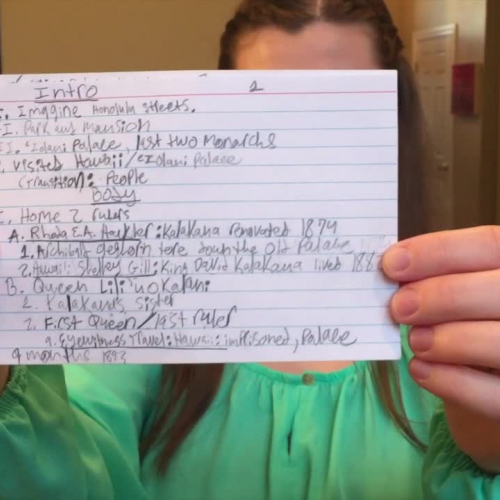 Intro 2
I. Imagine Honolulu streets.
II. Park and Mansion
III. 'Iolani Palace, last two Monarchs
visited Hawaii/'Iolani Palace
(Transition: People
Body
I. Home 2 rulers
A. Rhoda E.A. Hackler: Kalakaua renovated 1874
1. Archibald Cleghorn tore down the Old Palace
2. Hawaii: Shelley Gill: King David Kalakaua lived
B. Queen Lili'uokalani
1. Kalakaua's sister
2. First Queen/last ruler
a. Eyewitness Travel: Hawaii: imprisoned, Palace
9 months 1893